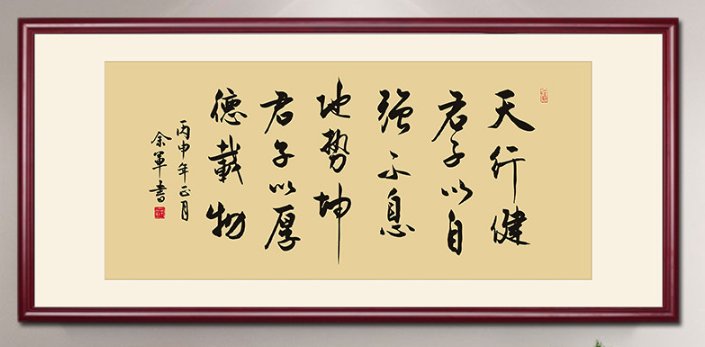 天行健
君子以自
强不息
地势坤
君子以厚
德载物
丙申年正月
余軍書